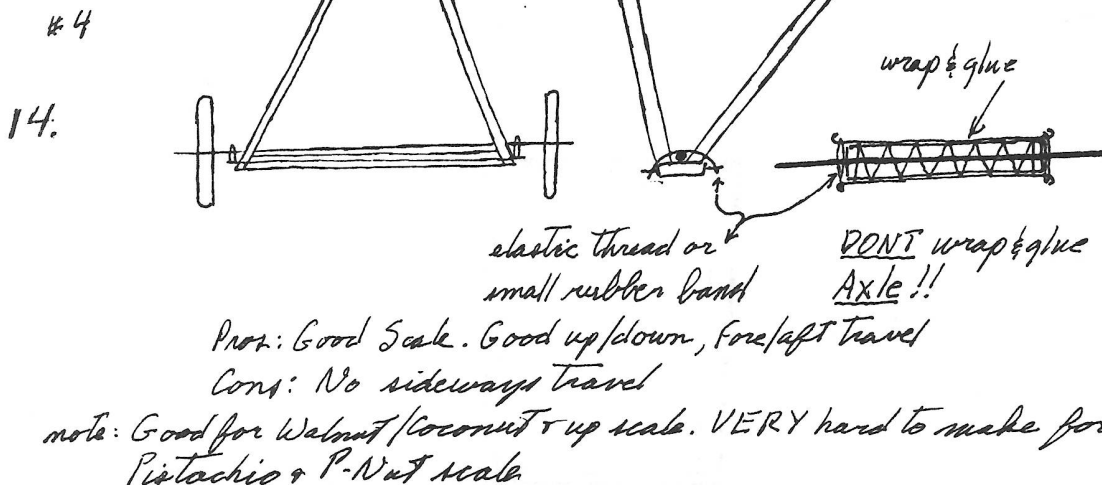 #4
14.
wrap & glue
elastic thread or
small rubber band
DONT wrap & glue
Axle!!
Pros: Good Scale. Good up/down, Fore/aft travel
Cons: No sideways travel
note: Good for Walnut/Coconut & up scale. VERY hard to make for
Pistachio & P-Nut scale